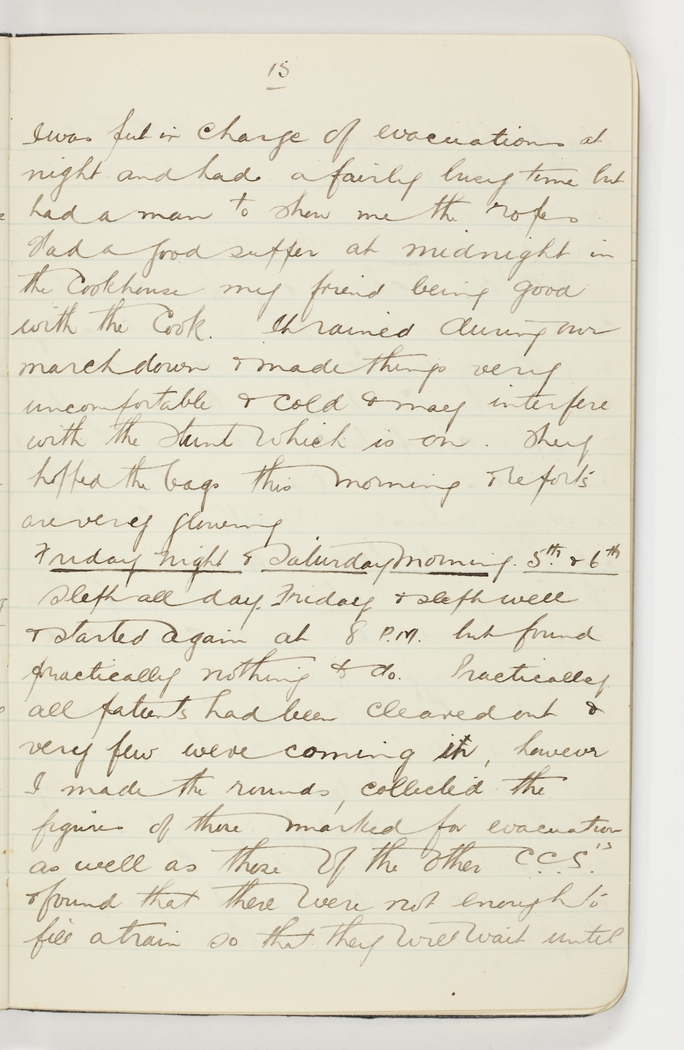 15
I was put in charge of evacuations at
night and had a fairly busy time but
had a man to show me the ropes.
Had a good supper at midnight in
the Cookhouse my friend being good
with the Cook. It rained during our
march down & made things very
uncomfortable & cold & may interfere
with the Stunt which is on. They
hopped the bags this morning & reports
are very glowing
Friday night & Saturday morning. 5th & 6th
Slept all day Friday & slept well
& started again at 8 P.M. but found
practically nothing to do. Practically
all patients had been cleared out &
very few were coming in, however
I made the rounds, collected the
figures of those marked for evacuation
as well as those of the other C.C.S.'s
& found that there were not enough to
fill a train so that they will wait until